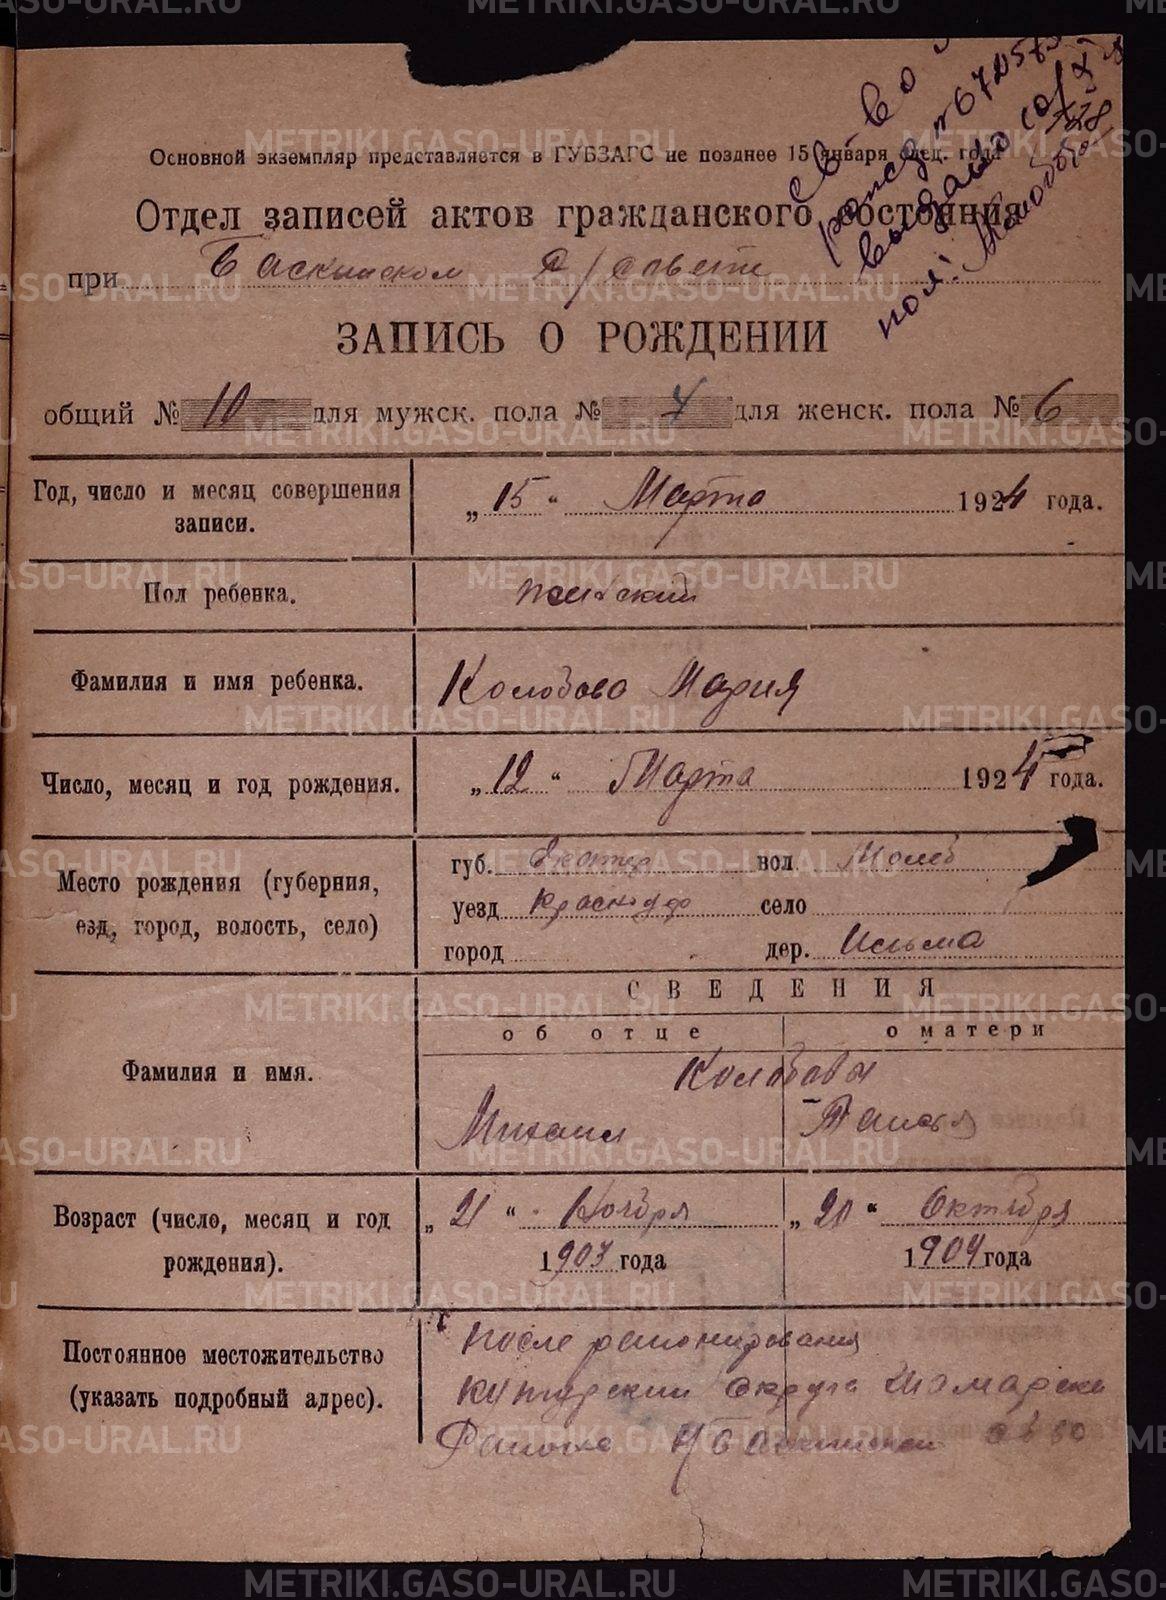 св-во
выдано
Основной экземпляр представляется в ГУБЗАГС не позднее 15 января след. года
Отдел записей актов гражданского состояния
при
ЗАПИСЬ О РОЖДЕНИИ
общий № 10 для мужск. пола № 4 для женск. пола № 6
Год, число и месяц совершения записи. „ 15 “ Марта 1924 года.
Пол ребенка. женский
Фамилия и имя ребенка. Колобова Мария
Число, месяц и год рождения. „ 12 “ Марта 1924 года.
Место рождения (губерния, езд, город, волость, село)
губ. Екатер вол Молеб
уезд Красноуф село
город дер. Исьма
СВЕДЕНИЯ
об отце о матери
Фамилия и имя. Колобовы
Михаил Таисья
Возраст (число, месяц и год рождения).
„ 21 “ Ноября „ 20 “ Октября
1903 года 1904 года
Постоянное местожительство (указать подробный адрес).
после районирования
округа
METRIKI.GASO-URAL.RU